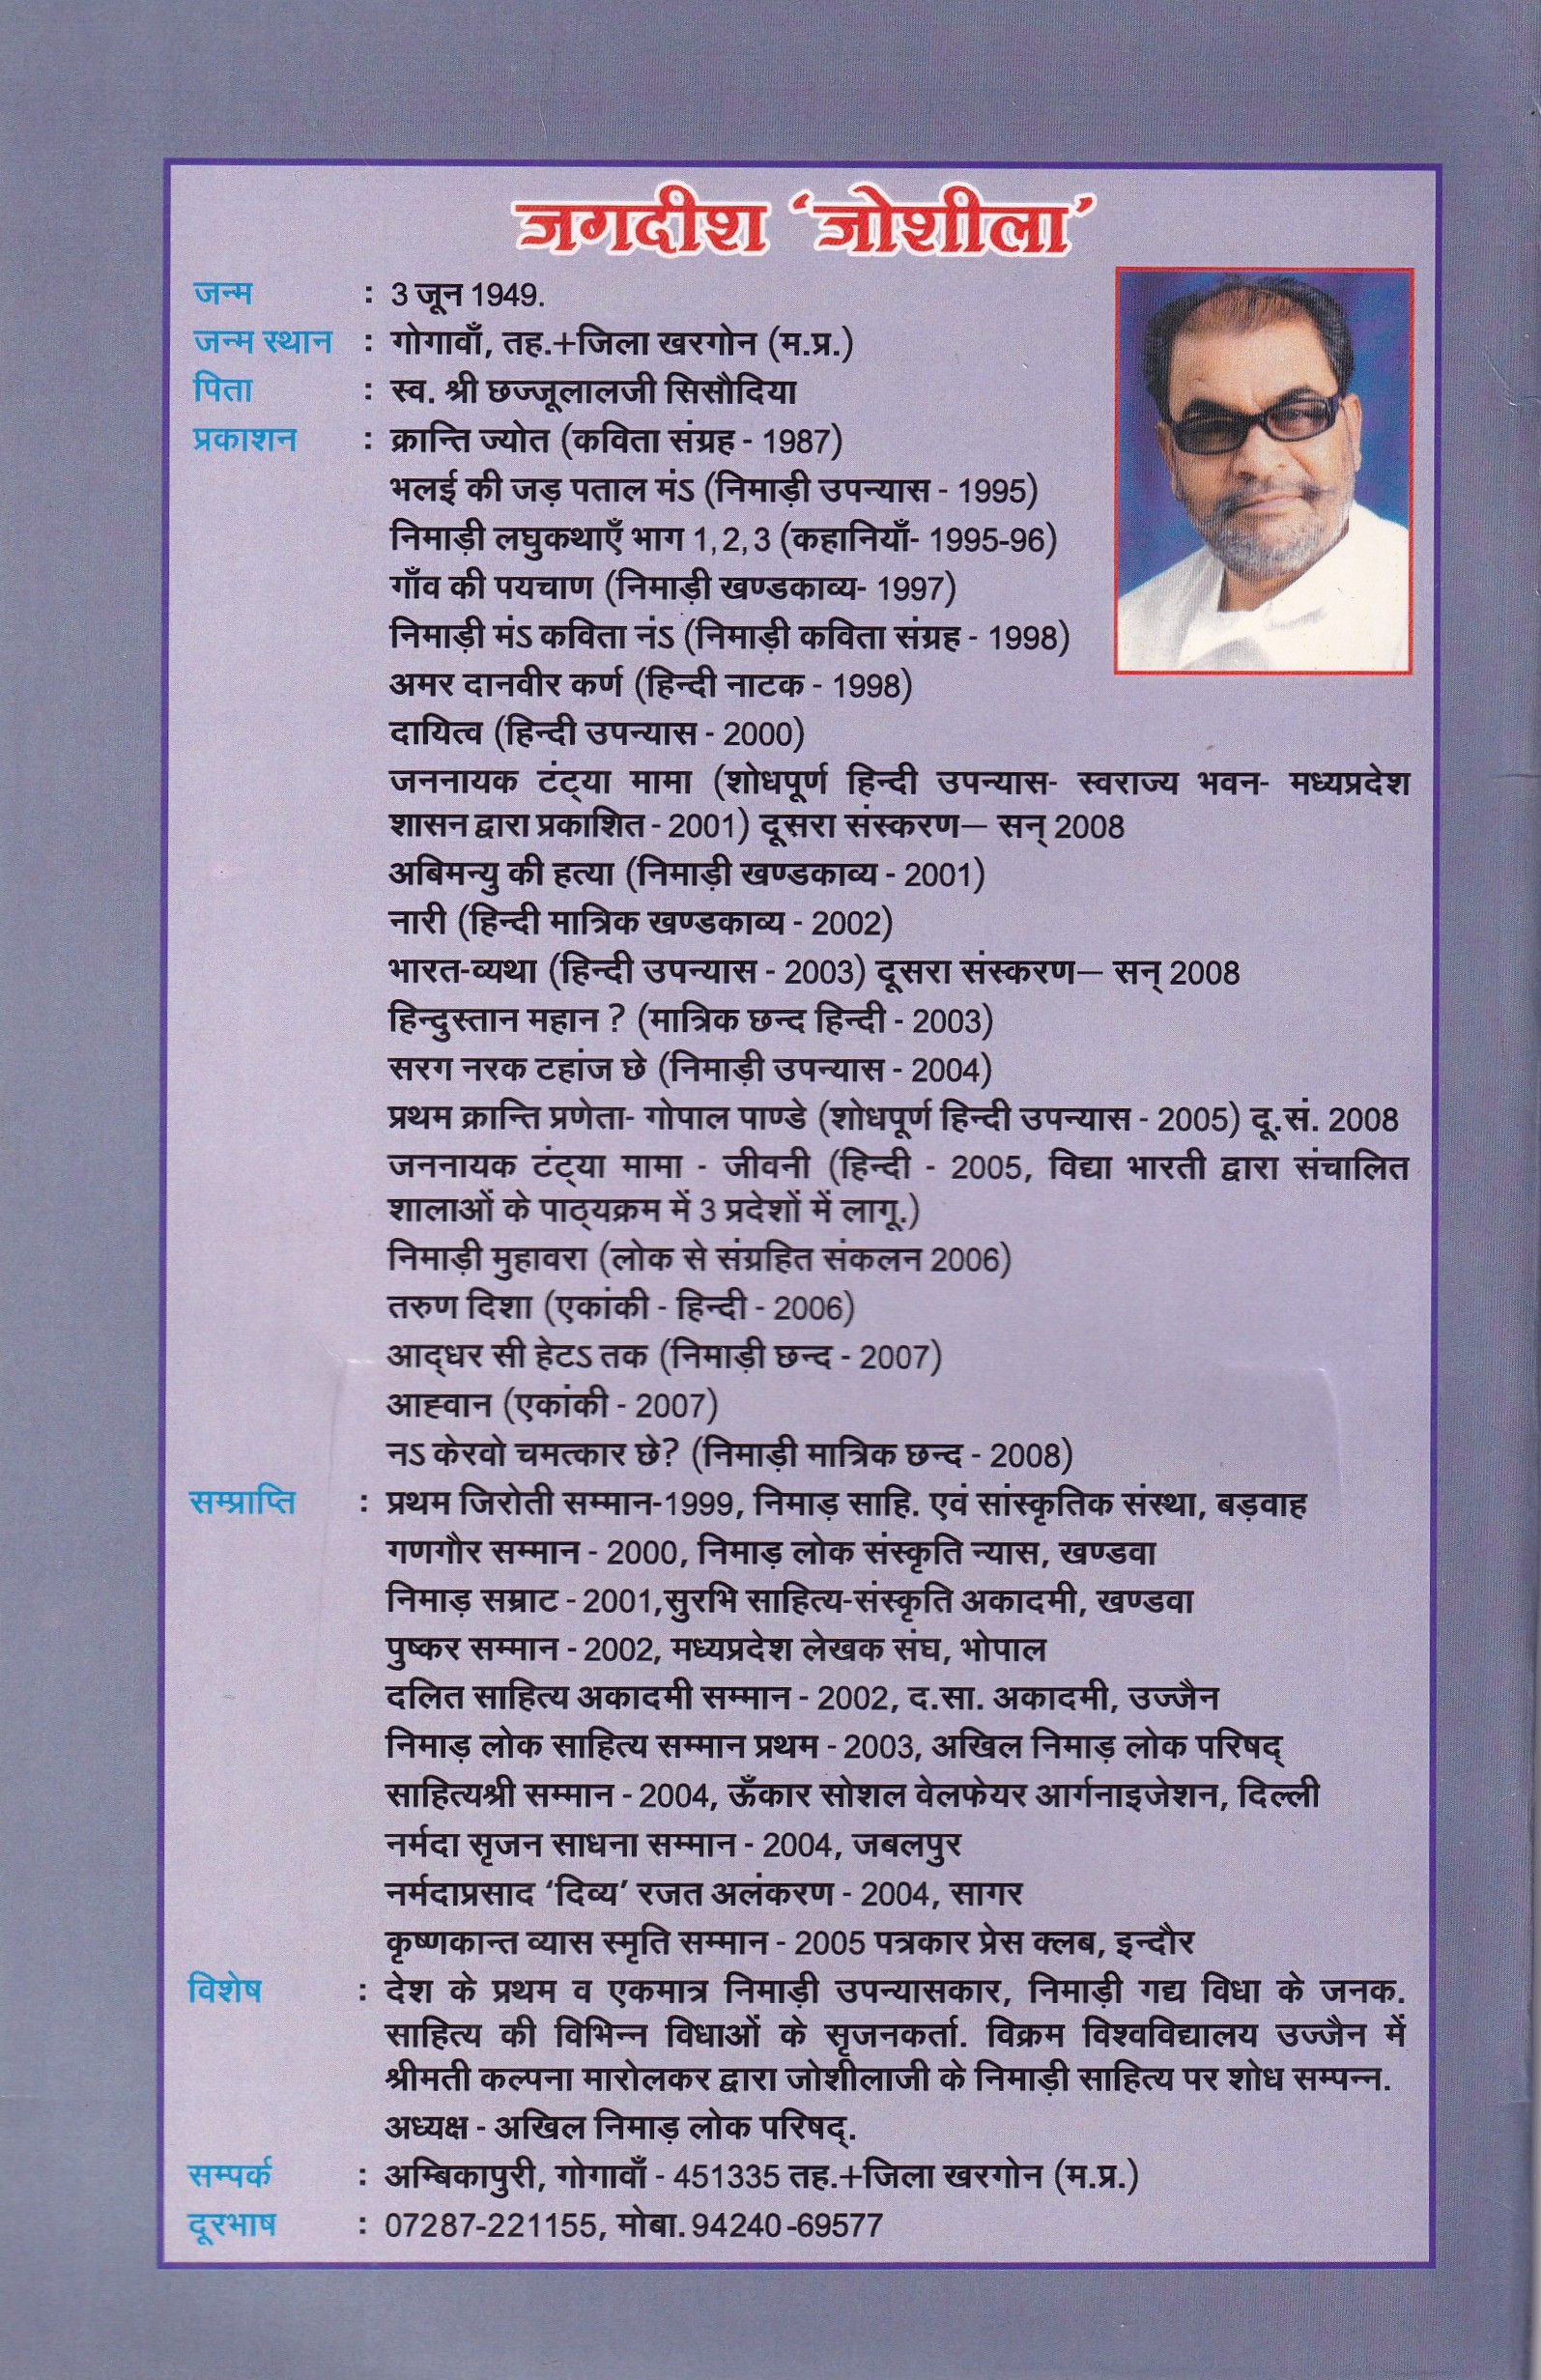 जगदीश ‘जोशीला’
जन्म : 3 जून 1949.
जन्म स्थान : गोगावाँ, तह.+जिला खरगोन (म.प्र.)
पिता : स्व. श्री छज्जूलालजी सिसौदिया
प्रकाशन : क्रान्ति ज्योत (कविता संग्रह - 1987)
भलई की जड़ पताल मंऽ (निमाड़ी उपन्यास - 1995)
निमाड़ी लघुकथाएँ भाग 1,2,3 (कहानियाँ- 1995-96)
गाँव की पयचाण (निमाड़ी खण्डकाव्य- 1997)
निमाड़ी मंऽ कविता नंऽ (निमाड़ी कविता संग्रह - 1998)
अमर दानवीर कर्ण (हिन्दी नाटक - 1998)
दायित्व (हिन्दी उपन्यास - 2000)
जननायक टंट्या मामा (शोधपूर्ण हिन्दी उपन्यास- स्वराज्य भवन- मध्यप्रदेश
शासन द्वारा प्रकाशित - 2001) दूसरा संस्करण– सन् 2008
अबिमन्यु की हत्या (निमाड़ी खण्डकाव्य - 2001)
नारी (हिन्दी मात्रिक खण्डकाव्य - 2002)
भारत-व्यथा (हिन्दी उपन्यास - 2003) दूसरा संस्करण– सन् 2008
हिन्दुस्तान महान ? (मात्रिक छन्द हिन्दी - 2003)
सरग नरक टहांज छे (निमाड़ी उपन्यास - 2004)
प्रथम क्रान्ति प्रणेता- गोपाल पाण्डे (शोधपूर्ण हिन्दी उपन्यास - 2005) दू.सं. 2008
जननायक टंट्या मामा - जीवनी (हिन्दी - 2005, विद्या भारती द्वारा संचालित
शालाओं के पाठ्यक्रम में 3 प्रदेशों में लागू.)
निमाड़ी मुहावरा (लोक से संग्रहित संकलन 2006)
तरुण दिशा (एकांकी - हिन्दी - 2006)
आद्धर सी हेटऽ तक (निमाड़ी छन्द - 2007)
आह्वान (एकांकी - 2007)
नऽ केरवो चमत्कार छे? (निमाड़ी मात्रिक छन्द - 2008)
सम्प्राप्ति : प्रथम जिरोती सम्मान-1999, निमाड़ साहि. एवं सांस्कृतिक संस्था, बड़वाह
गणगौर सम्मान - 2000, निमाड़ लोक संस्कृति न्यास, खण्डवा
निमाड़ सम्राट - 2001,सुरभि साहित्य-संस्कृति अकादमी, खण्डवा
पुष्कर सम्मान - 2002, मध्यप्रदेश लेखक संघ, भोपाल
दलित साहित्य अकादमी सम्मान - 2002, द.सा. अकादमी, उज्जैन
निमाड़ लोक साहित्य सम्मान प्रथम - 2003, अखिल निमाड़ लोक परिषद्
साहित्यश्री सम्मान - 2004, ऊँकार सोशल वेलफेयर आर्गनाइजेशन, दिल्ली
नर्मदा सृजन साधना सम्मान - 2004, जबलपुर
नर्मदाप्रसाद ‘दिव्य’ रजत अलंकरण - 2004, सागर
कृष्णकान्त व्यास स्मृति सम्मान - 2005 पत्रकार प्रेस क्लब, इन्दौर
विशेष : देश के प्रथम व एकमात्र निमाड़ी उपन्यासकार, निमाड़ी गद्य विधा के जनक.
साहित्य की विभिन्न विधाओं के सृजनकर्ता. विक्रम विश्वविद्यालय उज्जैन में
श्रीमती कल्पना मारोलकर द्वारा जोशीलाजी के निमाड़ी साहित्य पर शोध सम्पन्न.
अध्यक्ष - अखिल निमाड़ लोक परिषद्.
सम्पर्क : अम्बिकापुरी, गोगावाँ - 451335 तह.+जिला खरगोन (म.प्र.)
दूरभाष : 07287-221155, मोबा. 94240-69577